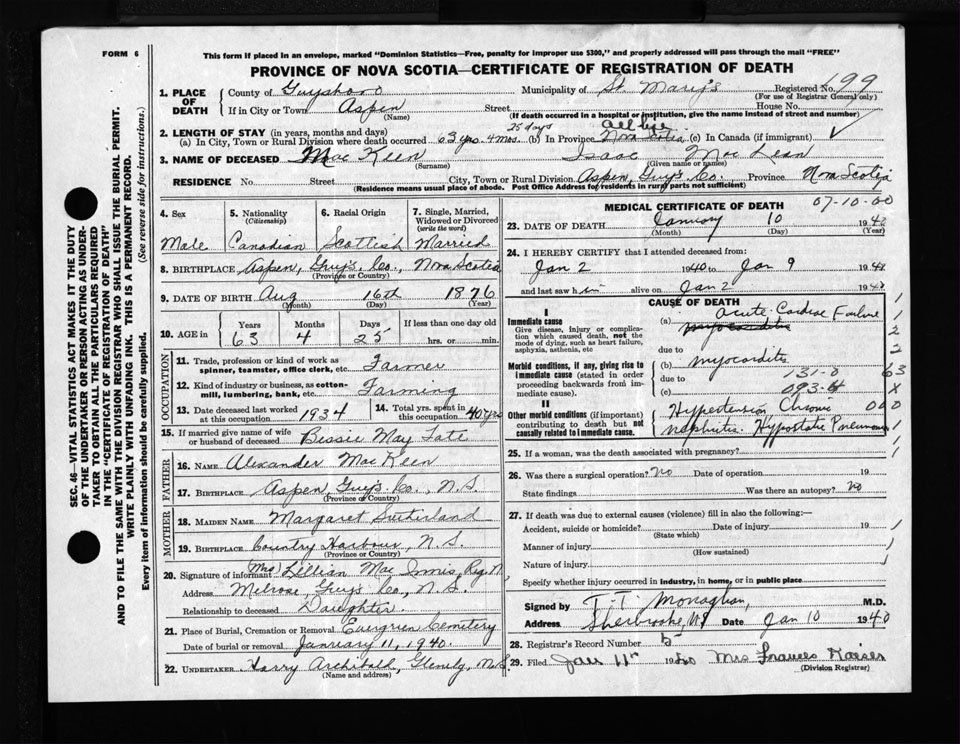 FORM 6
This form if placed in an envelope, marked "Dominion Statistics—Free, penalty for improper use $300," and properly addressed will pass through the mail "FREE"
PROVINCE OF NOVA SCOTIA—CERTIFICATE OF REGISTRATION OF DEATH
SEC. 46—VITAL STATISTICS ACT MAKES IT THE DUTY
OF THE UNDERTAKER OR PERSON ACTING AS UNDER-
TAKER TO OBTAIN ALL THE PARTICULARS REQUIRED
IN THE "CERTIFICATE OF REGISTRATION OF DEATH"
AND TO FILE THE SAME WITH THE DIVISION REGISTRAR WHO SHALL ISSUE THE BURIAL PERMIT.
WRITE PLAINLY WITH UNFADING INK. THIS IS A PERMANENT RECORD.
Every item of information should be carefully supplied. (See reverse side for instructions.)
1. PLACE OF DEATH County of Guysboro Municipality of St. Mary's Registered No. 199
(For use of Registrar General only)
If in City or Town Aspen Street House No.
(Name) (If death occurred in a hospital or institution, give the name instead of street and number)
2. LENGTH OF STAY (in years, months and days) 25 days all life
(a) In City, Town or Rural Division where death occurred 63 yrs. 4 mos. (b) In Province Nova Scotia (c) In Canada (if immigrant)
3. NAME OF DECEASED MacKeen Isaac MacLean
(Surname) (Given name or names)
RESIDENCE No. Street City, Town or Rural Division Aspen, Guy's Co. Province Nova Scotia
(Residence means usual place of abode. Post Office Address for residents in rural parts not sufficient)
07-10-00
4. Sex 5. Nationality (Citizenship) 6. Racial Origin 7. Single, Married, Widowed or Divorced (write the word)
Male Canadian Scottish Married
8. BIRTHPLACE Aspen, Guy's. Co., Nova Scotia
(Province or Country)
9. DATE OF BIRTH Aug 16th 1876
(Month) (Day) (Year)
10. AGE in Years Months Days If less than one day old
63 4 25 hrs. or min.
OCCUPATION
11. Trade, profession or kind of work as spinner, teamster, office clerk, etc. Farmer
12. Kind of industry or business, as cotton-mill, lumbering, bank, etc. Farming
13. Date deceased last worked at this occupation 1934 14. Total yrs. spent in this occupation 40 yrs
15. If married give name of wife or husband of deceased Bessie May Tate
FATHER
16. NAME Alexander MacKeen
17. BIRTHPLACE Aspen, Guy's. Co., N.S.
(Province or Country)
MOTHER
18. MAIDEN NAME Margaret Sutherland
19. BIRTHPLACE Country Harbour, N.S.
(Province or Country)
20. Signature of informant Mrs Lillian MacInnis, Reg. N.
Address Melrose, Guy's Co, N.S.
Relationship to deceased Daughter.
21. Place of Burial, Cremation or Removal Evergreen Cemetery
Date of burial or removal January 11, 1940.
22. UNDERTAKER Harry Archibald, Glenelg, N.S.
(Name and address)
MEDICAL CERTIFICATE OF DEATH
23. DATE OF DEATH January 10 1940
(Month) (Day) (Year)
24. I HEREBY CERTIFY that I attended deceased from:
Jan 2 1940 to Jan 9 1940
and last saw him alive on Jan 2 1940
CAUSE OF DEATH
I
Immediate cause
Give disease, injury or complication which caused death, not the mode of dying, such as heart failure, asphyxia, asthenia, etc
(a) Acute Cardiac Failure
myocarditis
due to
Morbid conditions, if any, giving rise to immediate cause (stated in order proceeding backwards from immediate cause).
(b) myocarditis
due to 131-0
(c) 093-4
II
Other morbid conditions (if important) contributing to death but not causally related to immediate cause.
Hypertension Chronic
nephritis. Hypostatic Pneumonia
1
2
2
63
X
000
25. If a woman, was the death associated with pregnancy?
26. Was there a surgical operation? No Date of operation 19
State findings Was there an autopsy? No
27. If death was due to external causes (violence) fill in also the following:—
Accident, suicide or homicide? Date of injury 19
(State which)
Manner of injury
(How sustained)
Nature of injury
Specify whether injury occurred in industry, in home, or in public place
Signed by T. T. Monaghan, M.D.
Address Sherbrooke, N.S. Date Jan 10 1940
28. Registrar's Record Number 5
29. Filed Jan 11th 1940 Mrs Frances Kaiser
(Division Registrar)